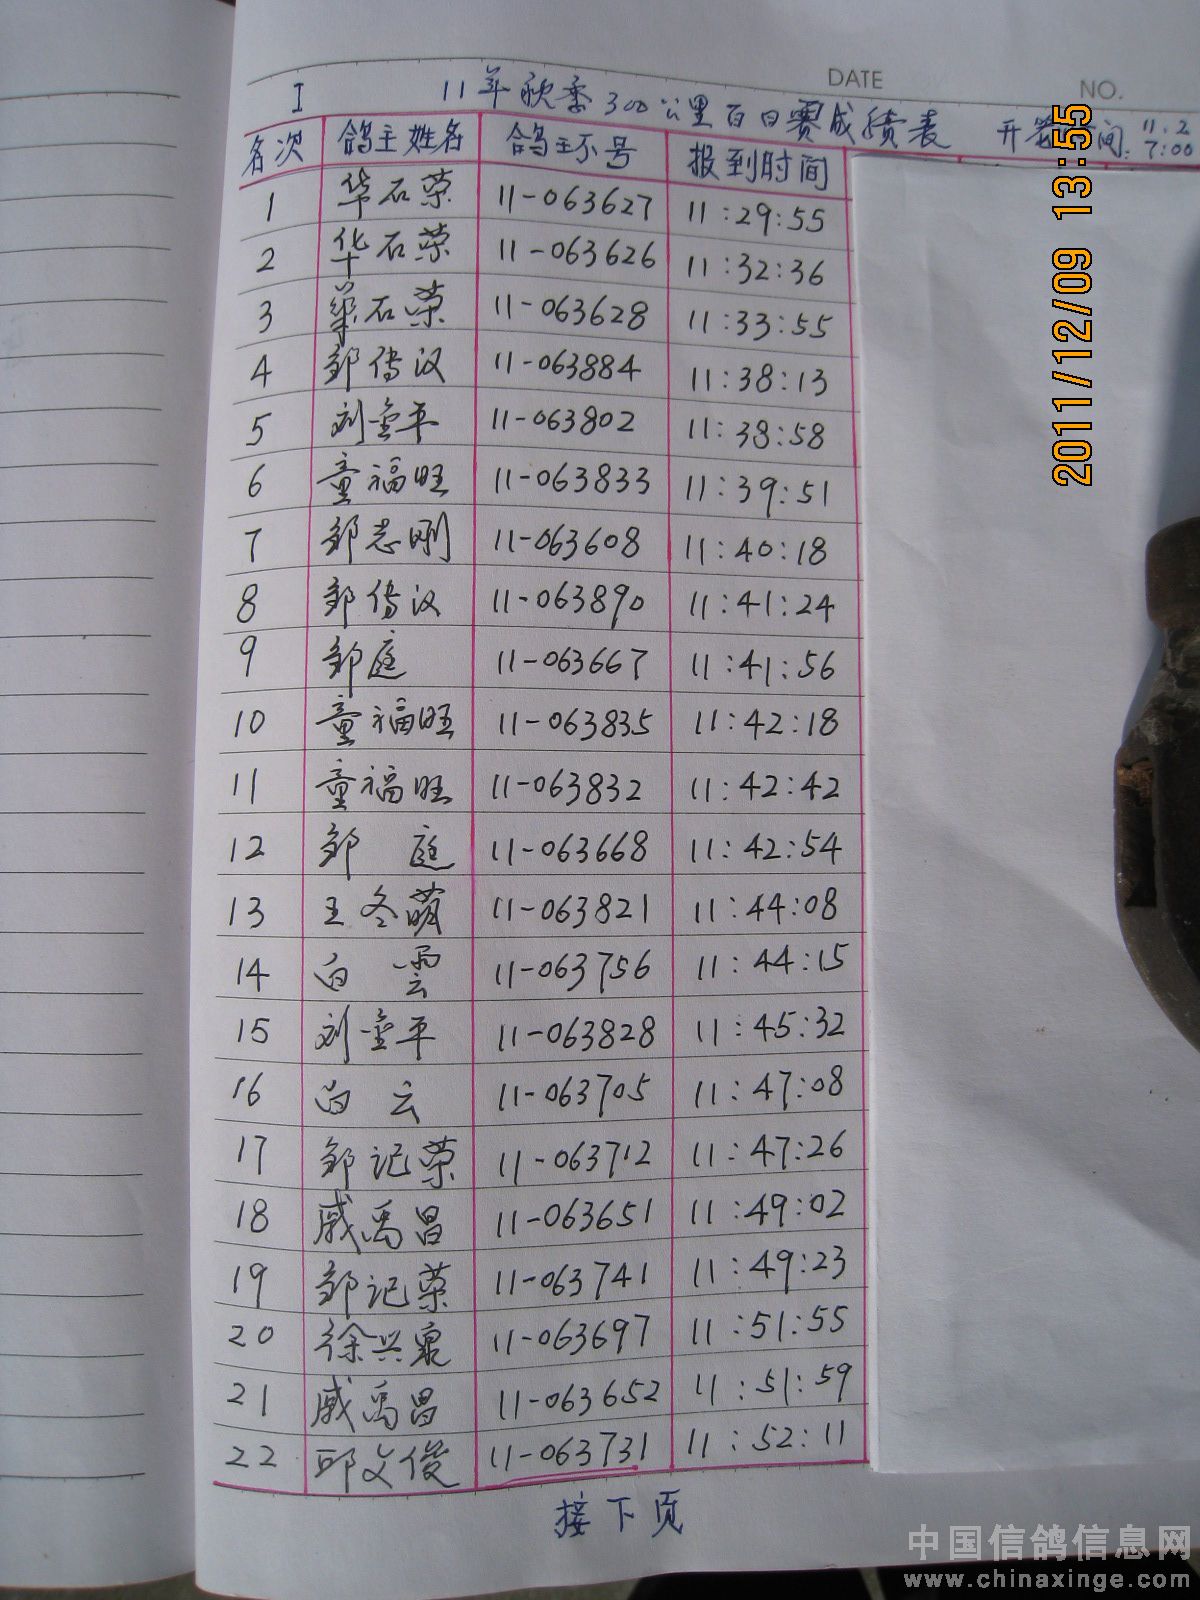 DATE
NO.
I 11年秋季300公里百日赛成绩表 开笼时间: 11.2 7:00
名次 鸽主姓名 鸽主环号 报到时间
1 华石荣 11-063627 11:29:55
2 华石荣 11-063626 11:32:36
3 华石荣 11-063628 11:33:55
4 邹传汉 11-063884 11:38:13
5 刘金平 11-063802 11:38:58
6 童福旺 11-063833 11:39:51
7 邹志刚 11-063608 11:40:18
8 邹传汉 11-063890 11:41:24
9 邹庭 11-063667 11:41:56
10 童福旺 11-063835 11:42:18
11 童福旺 11-063832 11:42:42
12 邹 庭 11-063668 11:42:54
13 王冬萌 11-063821 11:44:08
14 白 雲 11-063756 11:44:15
15 刘金平 11-063828 11:45:32
16 白 云 11-063705 11:47:08
17 邹记荣 11-063712 11:47:26
18 戚禹昌 11-063651 11:49:02
19 邹记荣 11-063741 11:49:23
20 徐兴泉 11-063697 11:51:55
21 戚禹昌 11-063652 11:51:59
22 邱文俊 11-063731 11:52:11
接下页
2011/12/09 13:55
中国信鸽信息网
www.chinaxinge.com